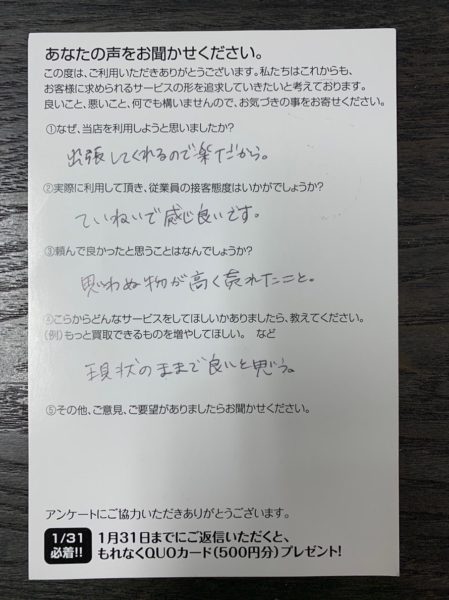 あなたの声をお聞かせください。
この度は、ご利用いただきありがとうございます。私たちはこれからも、
お客様に求められるサービスの形を追求していきたいと考えております。
良いこと、悪いこと、何でも構いませんので、お気づきの事をお寄せください。
①なぜ、当店を利用しようと思いましたか?
出張してくれるので楽だから。
②実際に利用して頂き、従業員の接客態度はいかがでしょうか?
ていねいで感じ良いです。
③頼んで良かったと思うことはなんでしょうか?
思わぬ物が高く売れたこと。
④こらからどんなサービスをしてほしいかありましたら、教えてください。
(例)もっと買取できるものを増やしてほしい。 など
現状のままで良いと思う。
⑤その他、ご意見、ご要望がありましたらお聞かせください。
アンケートにご協力いただきありがとうございます。
1/31
必着!!
1月31日までにご返信いただくと、
もれなくQUOカード(500円分)プレゼント!